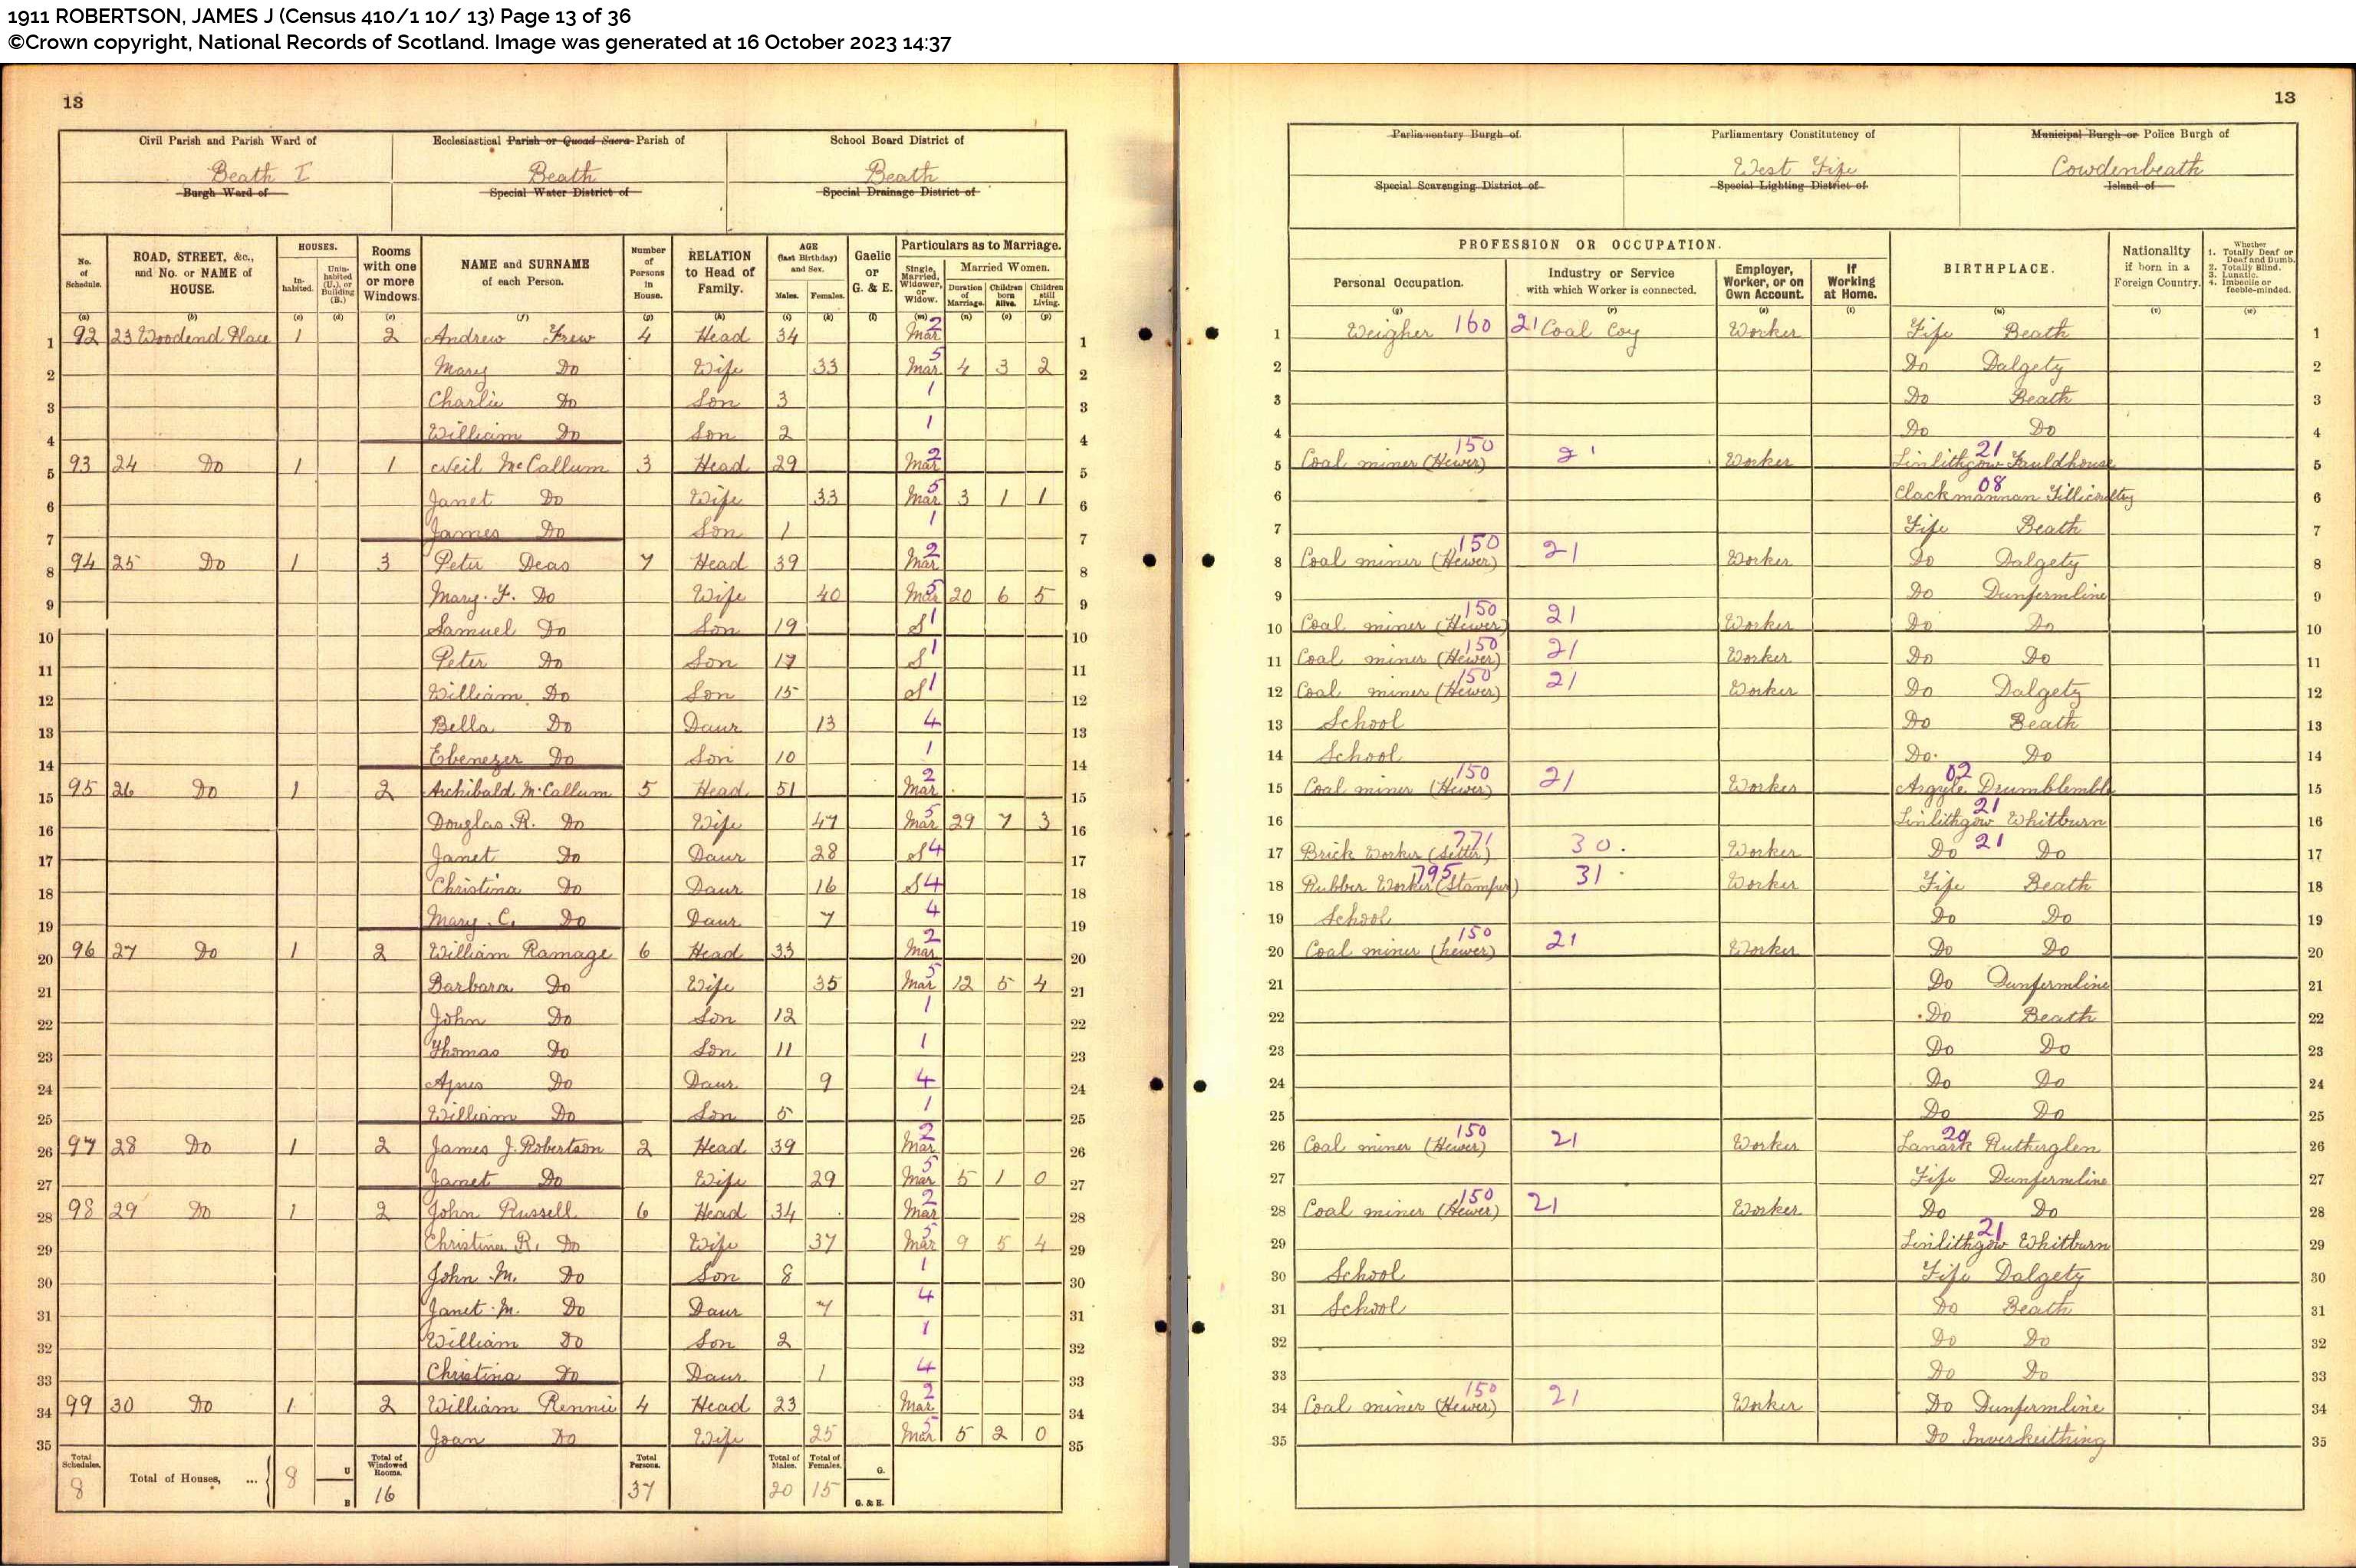 1911 ROBERTSON, JAMES J (Census 410/1 10/ 13) Page 13 of 36
©Crown copyright, National Records of Scotland. Image was generated at 16 October 2023 14:37
13
Civil Parish and Parish Ward of Ecclesiastical Parish or Quoad Sacra Parish of School Board District of
Beath I Beath Beath
Burgh Ward of Special Water District of Special Drainage District of
No. of Schedule. ROAD, STREET, &c., and No. or NAME of HOUSE. HOUSES. Inhabited. Uninhabited (U.), or Building (B.) Rooms with one or more Windows. NAME and SURNAME of each Person. Number of Persons in House. RELATION to Head of Family. AGE (last Birthday) and Sex. Males. Females. Gaelic or G. & E. Particulars as to Marriage. Single, Married, Widower, or Widow. Married Women. Duration of Marriage. Children born Alive. Children still Living.
(a) (b) (c) (d) (e) (f) (g) (h) (i) (k) (l) (m) (n) (o) (p)
1 92 23 Woodend Place 1 2 Andrew Frew 4 Head 34 Mar 2 1
2 Mary Do Wife 33 Mar 5 4 3 2 2
3 Charlie Do Son 3 1 3
4 William Do Son 2 1 4
5 93 24 Do 1 1 Neil McCallum 3 Head 29 Mar 2 5
6 Janet Do Wife 33 Mar 5 3 1 1 6
7 James Do Son 1 1 7
8 94 25 Do 1 3 Peter Deas 7 Head 39 Mar 2 8
9 Mary. F. Do Wife 40 Mar 5 20 6 5 9
10 Samuel Do Son 19 S 1 10
11 Peter Do Son 17 S 1 11
12 William Do Son 15 S 1 12
13 Bella Do Daur 13 4 13
14 Ebenezer Do Son 10 1 14
15 95 26 Do 1 2 Archibald McCallum 5 Head 51 Mar 2 15
16 Douglas. R. Do Wife 47 Mar 5 29 7 3 16
17 Janet Do Daur 28 S 4 17
18 Christina Do Daur 16 S 4 18
19 Mary. C. Do Daur 7 4 19
20 96 27 Do 1 2 William Ramage 6 Head 33 Mar 2 20
21 Barbara Do Wife 35 Mar 5 12 5 4 21
22 John Do Son 12 1 22
23 Thomas Do Son 11 1 23
24 Agnes Do Daur 9 4 24
25 William Do Son 5 1 25
26 97 28 Do 1 2 James J. Robertson 2 Head 39 Mar 2 26
27 Janet Do Wife 29 Mar 5 5 1 0 27
28 98 29 Do 1 2 John Russell 6 Head 34 Mar 2 28
29 Christina R. Do Wife 37 Mar 5 9 5 4 29
30 John M. Do Son 8 1 30
31 Janet M. Do Daur 7 4 31
32 William Do Son 2 1 32
33 Christina Do Daur 1 4 33
34 99 30 Do 1 2 William Rennie 4 Head 23 Mar 2 34
35 Joan Do Wife 25 Mar 5 5 2 0 35
Total Schedules, 8 Total of Houses, ... 8 U B Total of Windowed Rooms. 16 Total Persons. 37 Total of Males. 20 Total of Females. 15 G. G. & E.
13
Parliamentary Burgh of Parliamentary Constitutency of Municipal Burgh or Police Burgh of
West Fife Cowdenbeath
Special Scavenging District of Special Lighting District of Island of
PROFESSION OR OCCUPATION. Personal Occupation. Industry or Service with which Worker is connected. Employer, Worker, or on Own Account. If Working at Home. BIRTHPLACE. Nationality if born in a Foreign Country. Whether 1. Totally Deaf or Deaf and Dumb. 2. Totally Blind. 3. Lunatic. 4. Imbecile or feeble-minded.
(q) (r) (s) (t) (u) (v) (w)
1 Weigher 160 21 Coal Coy Worker Fife Beath 1
2 Do Dalgety 2
3 Do Beath 3
4 Do Do 4
5 Coal miner (Hewer) 150 21 Worker Linlithgow Fauldhouse 21 5
6 Clackmannan Tillicoultry 08 6
7 Fife Beath 7
8 Coal miner (Hewer) 150 21 Worker Do Dalgety 8
9 Do Dunfermline 9
10 Coal miner (Hewer) 150 21 Worker Do Do 10
11 Coal miner (Hewer) 150 21 Worker Do Do 11
12 Coal miner (Hewer) 150 21 Worker Do Dalgety 12
13 School Do Beath 13
14 School Do. Do 14
15 Coal miner (Hewer) 150 21 Worker Argyle Drumblemble 02 15
16 Linlithgow Whitburn 21 16
17 Brick Worker (Setter) 771 30 Worker Do 21 Do 17
18 Rubber Worker (Stamper) 795 31 Worker Fife Beath 18
19 School Do Do 19
20 Coal miner (hewer) 150 21 Worker Do Do 20
21 Do Dunfermline 21
22 Do Beath 22
23 Do Do 23
24 Do Do 24
25 Do Do 25
26 Coal miner (Hewer) 150 21 Worker Lanark Rutherglen 20 26
27 Fife Dunfermline 27
28 Coal miner (Hewer) 150 21 Worker Do Do 28
29 Linlithgow Whitburn 21 29
30 School Fife Dalgety 30
31 School Do Beath 31
32 Do Do 32
33 Do Do 33
34 Coal miner (Hewer) 150 21 Worker Do Dunfermline 34
35 Do Inverkeithing 35